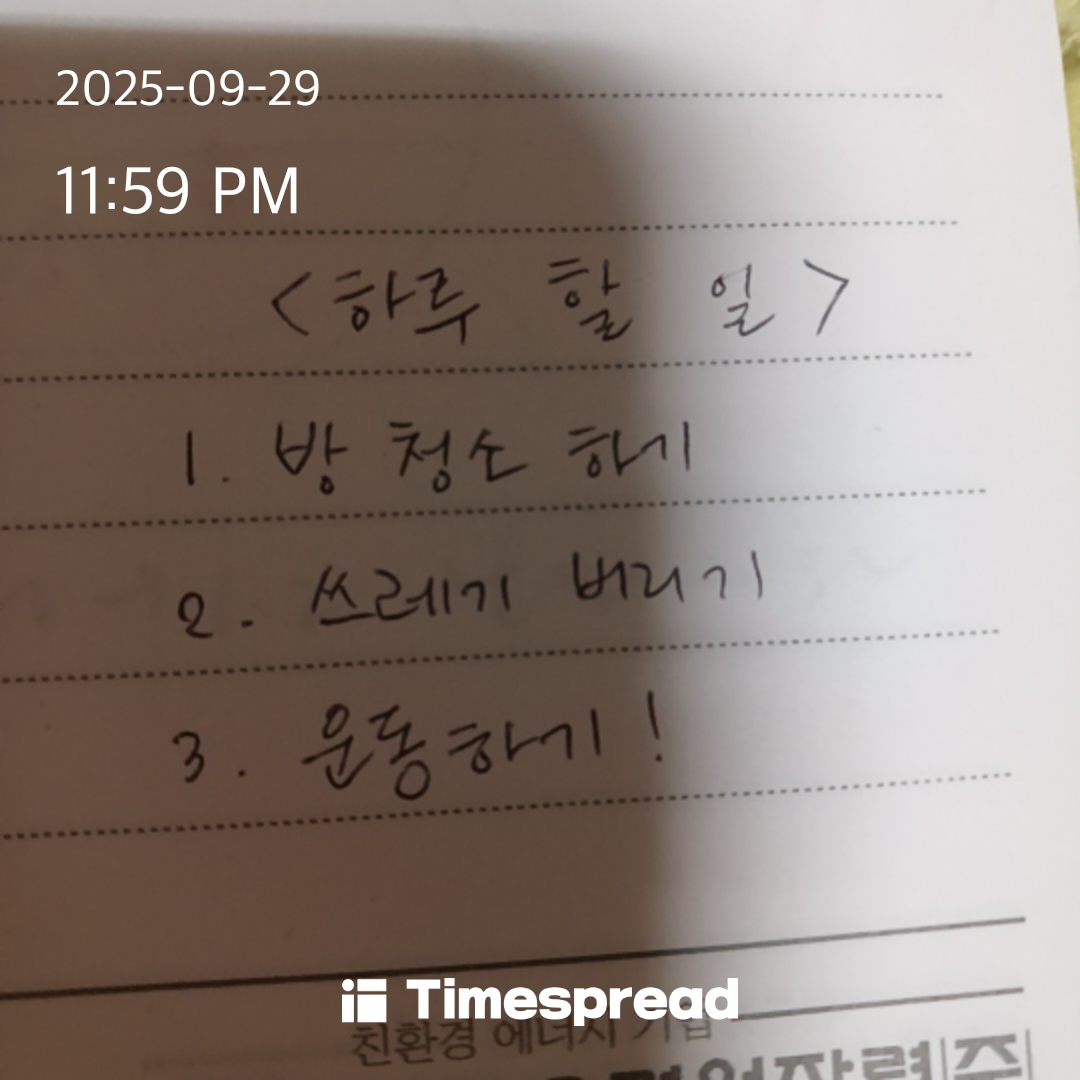 2025-09-29
11:59 PM
<하루 할 일>
1. 방 청소 하기
2. 쓰레기 버리기
3. 운동하기!
Timespread
친환경 에너지 기업